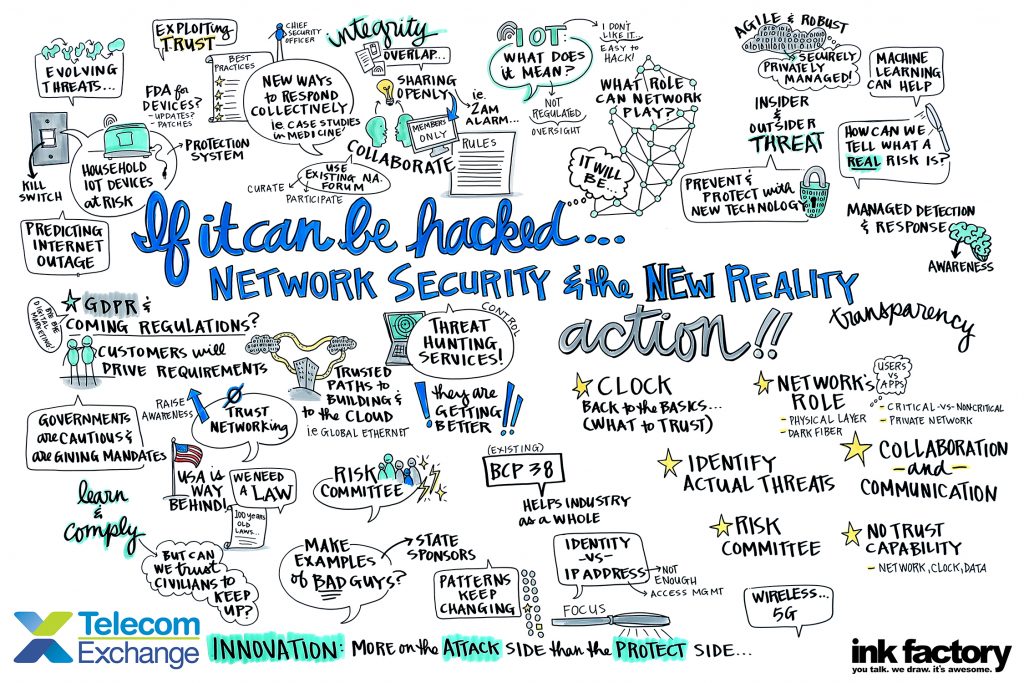 EVOLVING
THREATS...
EXPLOITING
TRUST
CHIEF
SECURITY
OFFICER
BEST
PRACTICES
FDA for
DEVICES?
- UPDATES?
- PATCHES
NEW WAYS to
RESPOND
COLLECTIVELY
ie. CASE STUDIES
in MEDICINE
integrity
OVERLAP...
SHARING
OPENLY
ie.
2AM
ALARM...
MEMBERS
ONLY
COLLABORATE
RULES
IOT:
WHAT DOES
it MEAN?
I DON'T
LIKE IT...
EASY to
HACK!
NOT
REGULATED
OVERSIGHT
WHAT ROLE
CAN NETWORK
PLAY?
IT WILL
BE...
AGILE & ROBUST
SECURELY
PRIVATELY
MANAGED!
MACHINE
LEARNING
CAN HELP
INSIDER
&
OUTSIDER
THREAT
HOW CAN WE
TELL WHAT a
REAL RISK IS?
PREVENT &
PROTECT with
NEW TECHNOLOGY
MANAGED DETECTION
& RESPONSE
AWARENESS
KILL
SWITCH
HOUSEHOLD
IOT DEVICES
at RISK
PROTECTION
SYSTEM
USE
EXISTING N.A.
FORUM
CURATE
PARTICIPATE
PREDICTING
INTERNET
OUTAGE
If it can be hacked...
NETWORK SECURITY & the NEW REALITY
BYE BYE
DIGITAL
MARKETING!
GDPR &
COMING REGULATIONS?
CUSTOMERS will
DRIVE REQUIREMENTS
TRUSTED
PATHS to
BUILDING &
to the CLOUD
i.e GLOBAL ETHERNET
CONTROL
THREAT
HUNTING
SERVICES!
they are
GETTING
BETTER
GOVERNMENTS
are CAUTIOUS &
are GIVING MANDATES
RAISE
AWARENESS
TRUST
NETWORKING
USA is
WAY
BEHIND!
WE NEED
a LAW
100 YEARS
OLD
LAWS...
RISK
COMMITTEE
learn
&
comply
BUT CAN
WE trust
CIVILIANS to
KEEP
UP?
MAKE
EXAMPLES
of BAD GUYS?
STATE
SPONSORS
(EXISTING)
BCP 38
HELPS INDUSTRY
as a WHOLE
PATTERNS
KEEP
CHANGING
IDENTITY
-VS-
IP ADDRESS
NOT
ENOUGH
ACCESS MGMT
FOCUS
action!!
transparency
CLOCK
BACK to the BASICS...
(WHAT to TRUST)
NETWORK'S
ROLE
- PHYSICAL LAYER
- DARK FIBER
USERS
VS
APPS
- CRITICAL-VS-NONCRITICAL
- PRIVATE NETWORK
IDENTIFY
ACTUAL THREATS
COLLABORATION
-and-
COMMUNICATION
RISK
COMMITTEE
NO TRUST
CAPABILITY
- NETWORK, CLOCK, DATA
WIRELESS...
5G
Telecom
Exchange
INNOVATION: MORE on the ATTACK SIDE than the PROTECT SIDE...
ink factory
you talk. we draw. it's awesome.